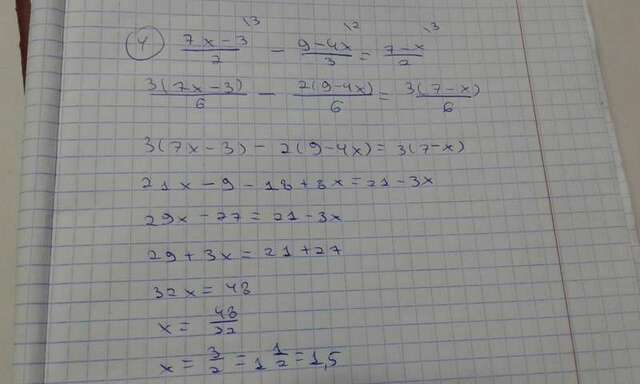 4) (7x-3)/2 \3 - (9-4x)/3 \2 = (7-x)/2 \3
3(7x-3)/6 - 2(9-4x)/6 = 3(7-x)/6
3(7x-3) - 2(9-4x) = 3(7-x)
21x - 9 - 18 + 8x = 21 - 3x
29x - 27 = 21 - 3x
29 + 3x = 21 + 27
32x = 48
x = 48/32
x = 3/2 = 1 1/2 = 1,5